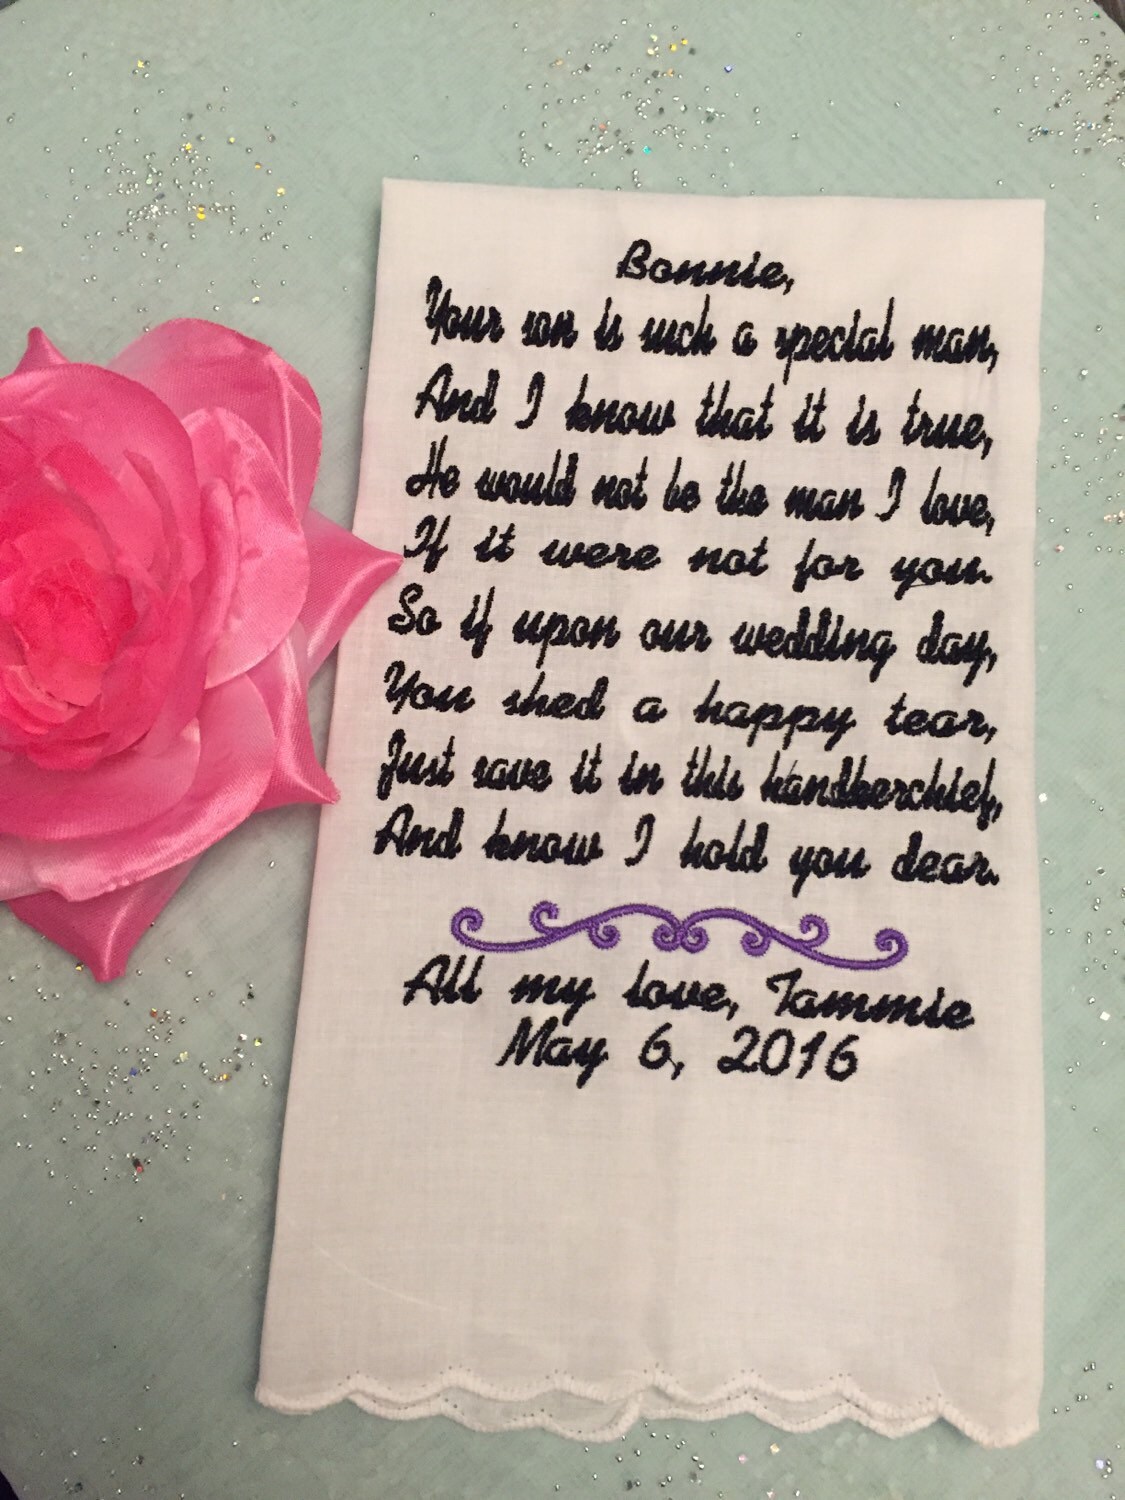 Bonnie,
Your son is such a special man,
And I know that it is true,
He would not be the man I love,
If it were not for you.
So if upon our wedding day,
You shed a happy tear,
Just save it in this handkerchief,
And know I hold you dear.
All my love, Tammie
May 6, 2016